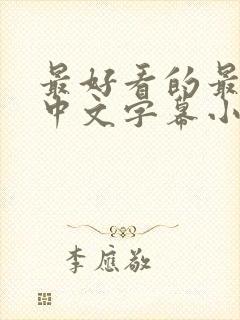 最好看的最
中文字幕小
李应敬